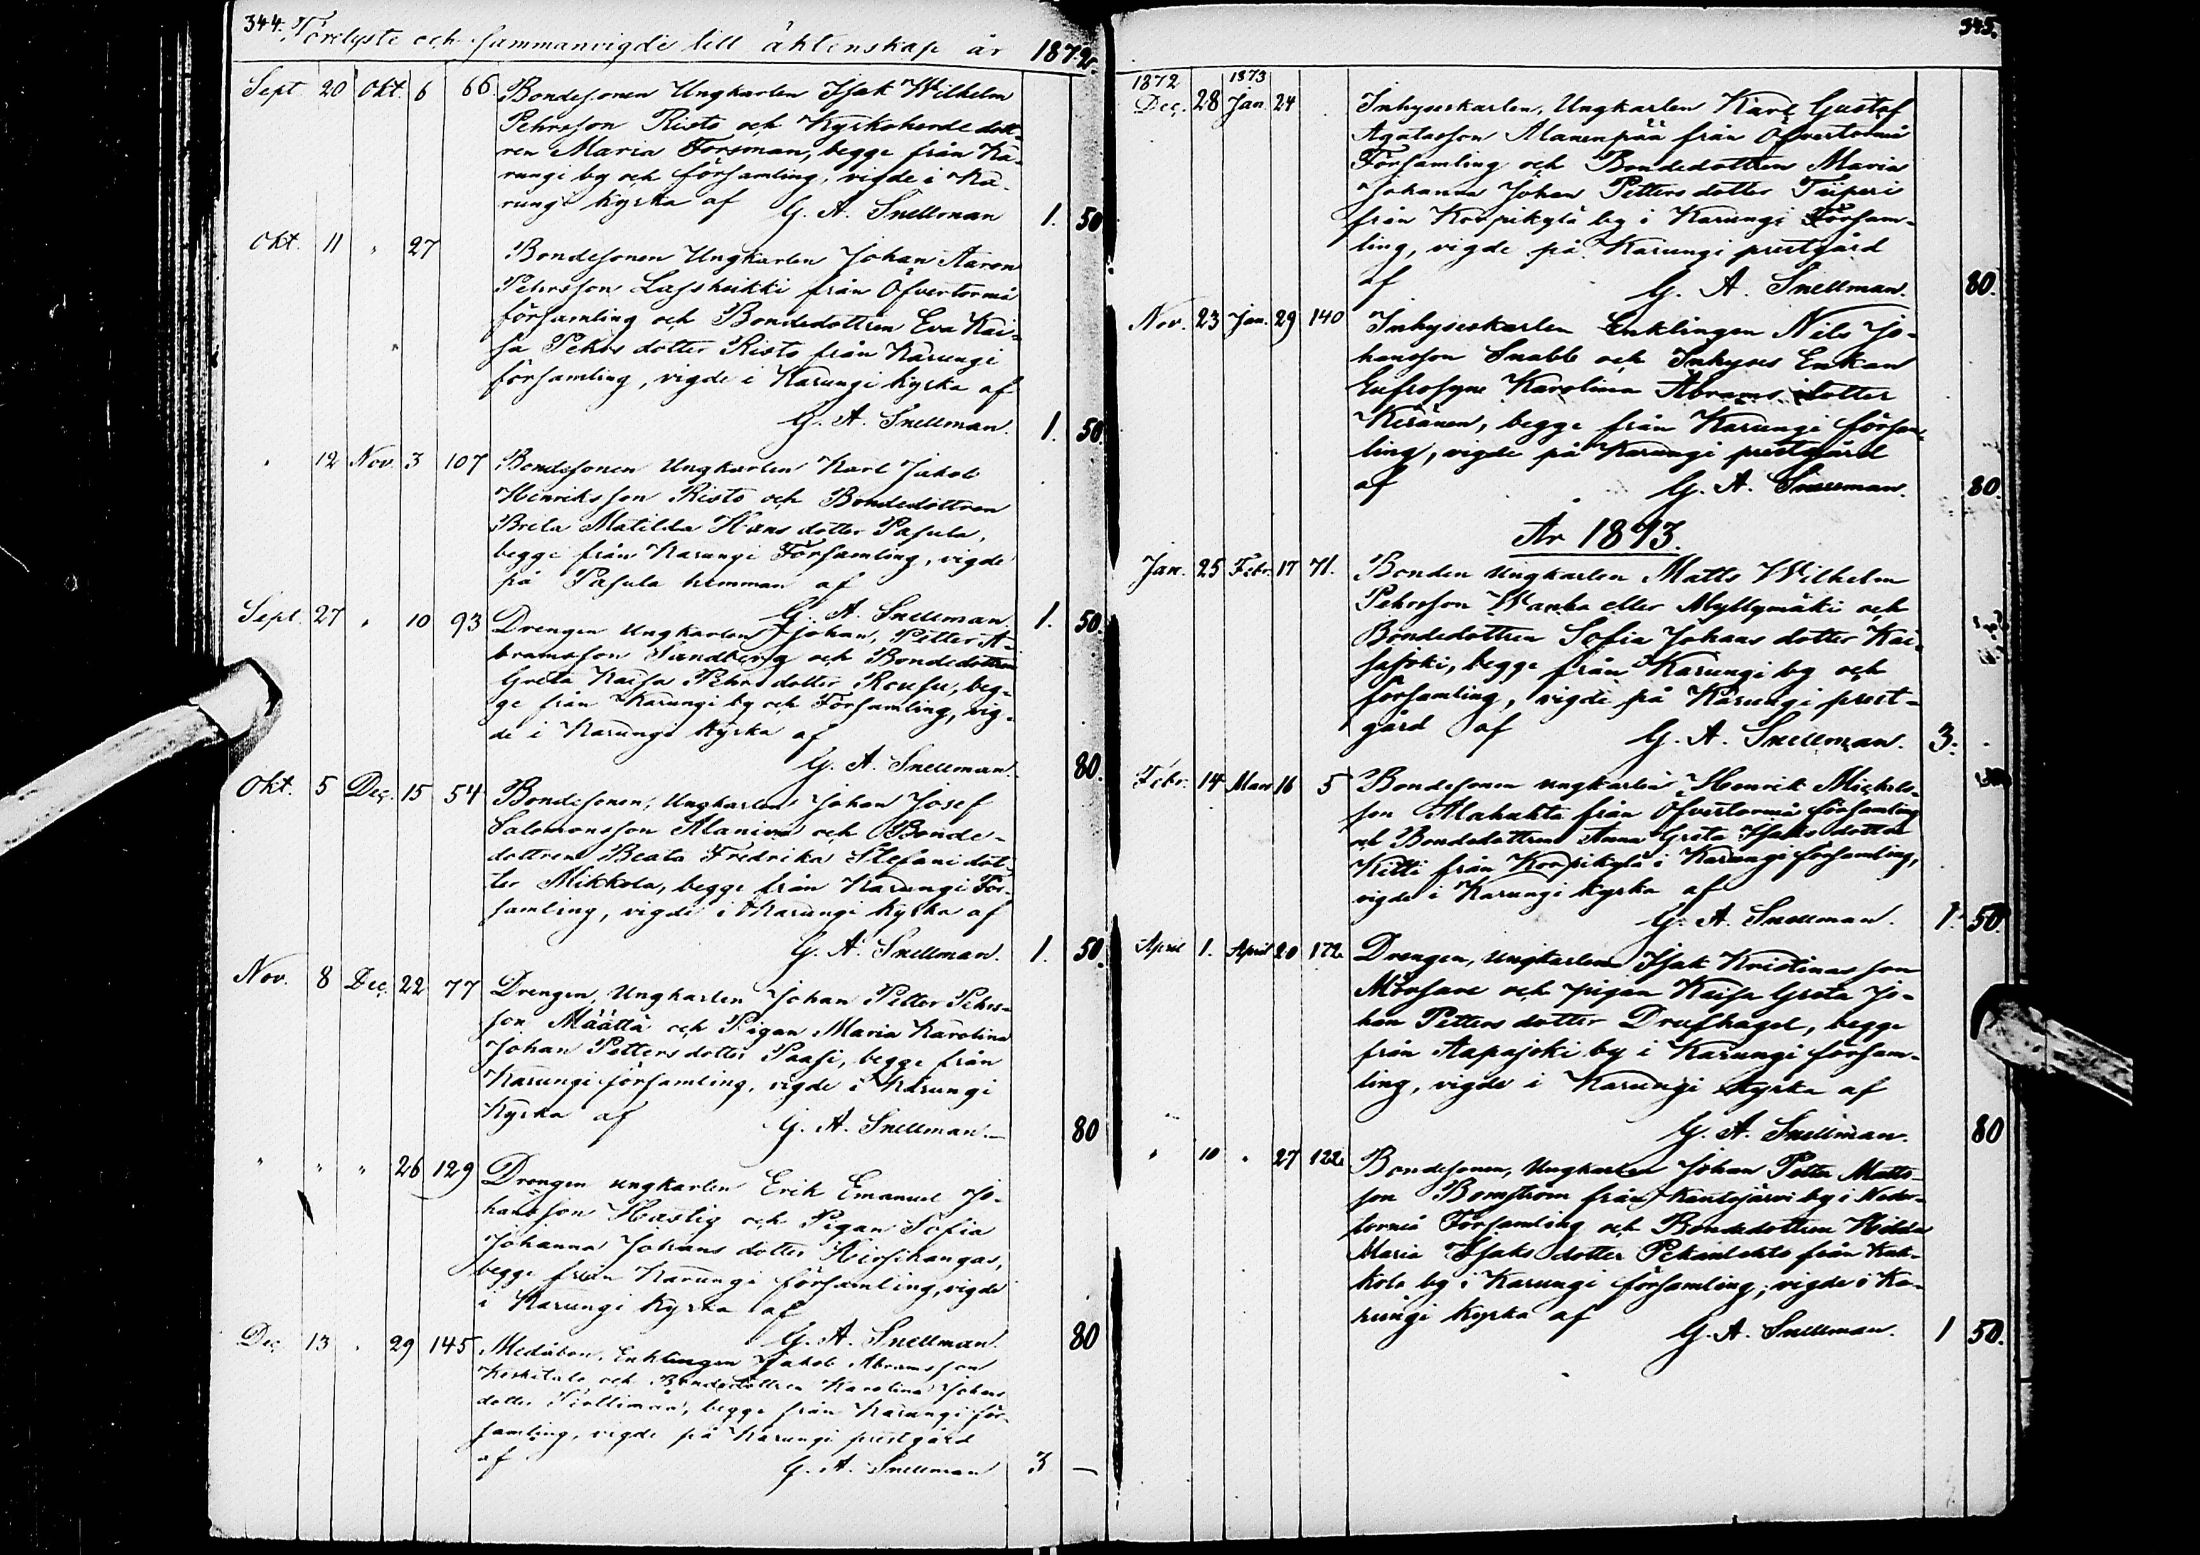 344. Förelyste och sammanvigde till äktenskap år 1872.
Sept 20 Okt. 6 66 Bondesonen Ungkarlen Isak Wilhelm
Pehrsson Risto och Kyrkoherde dott-
ren Maria Forsman, begge från Ka-
rungi by och församling, vigde i Ka-
rungi kyrka af G. A. Snellman 1. 50
Okt. 11 " 27 Bondesonen Ungkarlen Johan Aaron
Pehrsson Lassheikki från Öfvertorneå
församling och Bondedottren Eva Kai-
sa Pehrs dotter Risto från Karungi
församling, vigde i Karungi kyrka af
G. A. Snellman. 1. 50.
" 12 Nov. 3 107 Bondesonen Ungkarlen Karl Jakob
Henriksson Risto och Bondedottren
Breta Matilda Hans dotter Pasula,
begge från Karungi Församling, vigde
på Pasula hemman af
G. A. Snellman. 1. 50.
Sept. 27 " 10 93 Drengen Ungkarlen Johan Petter A-
bramsson Sandberg och Bondedottren
Greta Kaisa Pehrs dotter Rousu, beg-
ge från Karungi by och Församling, vig-
de i Karungi kyrka af
G. A. Snellman. 80.
Okt. 5 Dec. 15 54 Bondesonen, Ungkarlen Johan Josef
Salomonsson Alaniva och Bonde-
dottren Beata Fredrika Stefani dot-
ter Mikkola, begge från Karungi För-
samling, vigde i Karungi kyrka af
G. A. Snellman. 1. 50.
Nov. 8 Dec. 22 77 Drengen, Ungkarlen Johan Petter Pehrs-
son Määttä och Pigan Maria Karolina
Johan Petters dotter Paasi, begge från
Karungi församling, vigde i Karungi
kyrka af G. A. Snellman. 80
" " " 26 129 Drengen ungkarlen Erik Emanuel Jo-
hansson Hastig och Pigan Sofia
Johanna Johans dotter Hirsikangas,
begge från Karungi församling, vigde
i Karungi kyrka af
G. A. Snellman. 80
Dec. 13 " 29 145 Medåbon, Enklingen Jakob Abramsson
Keskitalo och Bondedottren Karolina Johans
dotter begge från Karungi för-
samling, vigde på Karungi prestgård
af G. A. Snellman 3 —
345.
1872 1873
Dec. 28 Jan. 24 Inhyseskarlen, Ungkarlen Karl Gustaf
Agatasson Alanenpää från Öfvertorneå
Församling och Bondedottren Maria
Johanna Johan Petters dotter Taiperi
från Korpikylä by i Karungi Försam-
ling, vigde på Karungi prestgård
af G. A. Snellman. 80.
Nov. 23 Jan. 29 140 Inhyseskarlen Enklingen Nils Jo-
hansson Snabb och Inhyses Enkan
Eufrosyne Karolina Abrams dotter
Keränen, begge från Karungi försam-
ling, vigde på Karungi prestgård
af G. A. Snellman. 80.
År 1873.
Jan. 25 Febr. 17 71. Bonden ungkarlen Matts Wilhelm
Pehrsson Wanha eller Myllymäki och
Bondedottren Sofia Johans dotter Kai-
sajoki, begge från Karungi by och
församling, vigde på Karungi prest-
gård af G. A. Snellman. 3.
Febr. 14 Mars 16 5 Bondesonen ungkarlen Henrik Michels-
son Alahuhta från Öfvertorneå församling
och Bondedottren Anna Greta Isaks dotter
Kitti från Korpikylä i Karungi församling,
vigde i Karungi kyrka af
G. A. Snellman. 1. 50.
April 1. April 20 172 Drengen, ungkarlen Isak Kristinasson
Mörsare och pigan Kaisa Greta Jo-
han Petters dotter Drufhagel, begge
från Aapajoki by i Karungi försam-
ling, vigde i Karungi kyrka af
G. A. Snellman. 80
" 10 " 27 122 Bondesonen, Ungkarlen Johan Petter Matts-
son Bomström från Kantojärvi by i Neder-
torneå Församling och Bondedottren Hilda
Maria Isaks dotter Pekanlehto från Kuk-
kola by i Karungi församling, vigde i Ka-
rungi kyrka af G. A. Snellman. 1 50.